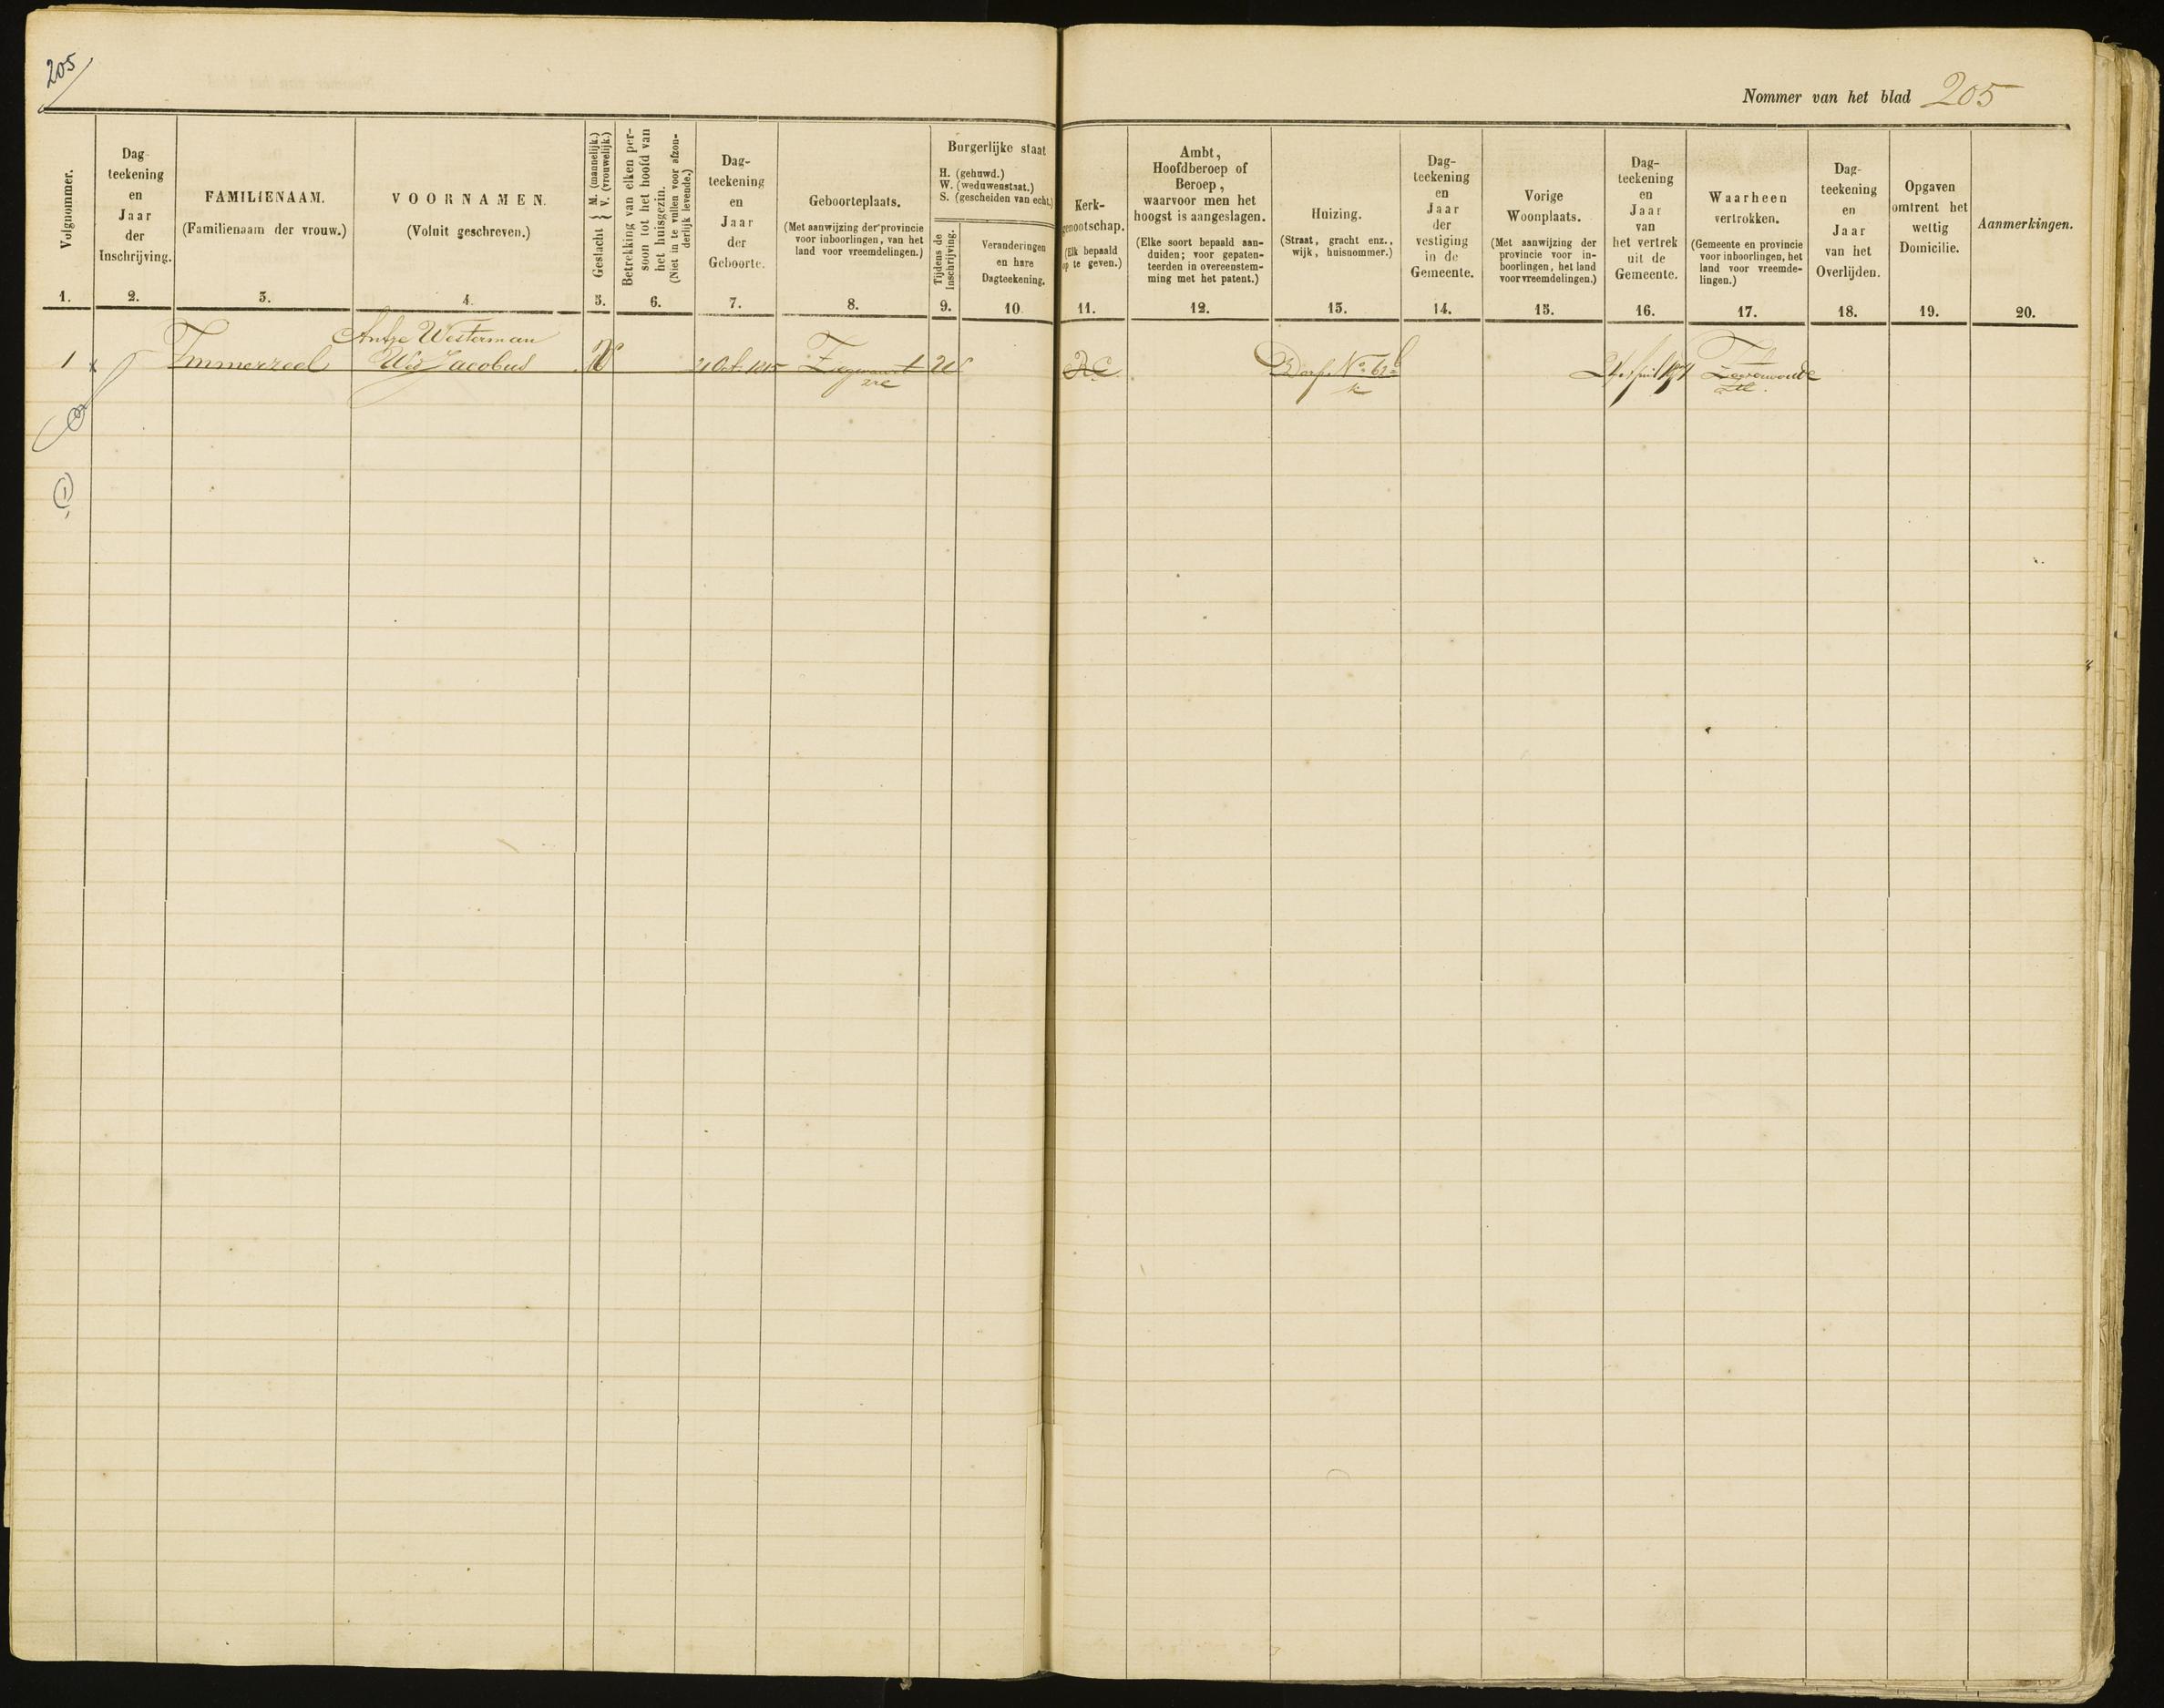 205
Nommer van het blad 205
Volgnommer.
1.
Dag-
teekening
en
Jaar
der
Inschrijving.
2.
FAMILIENAAM.
(Familienaam der vrouw.)
3.
VOORNAMEN.
(Voluit geschreven.)
4.
Geslacht } M. (mannelijk.)
V. (vrouwelijk.)
5.
Betrekking van elken per-
soon tot het hoofd van
het huisgezin.
(Niet in te vullen voor afzon-
derlijk levende.)
6.
Dag-
teekening
en
Jaar
der
Geboorte.
7.
Geboorteplaats.
(Met aanwijzing der provincie
voor inboorlingen, van het
land voor vreemdelingen.)
8.
Burgerlijke staat
H. (gehuwd.)
W. (weduwenstaat.)
S. (gescheiden van echt.)
Tijdens de
Inschrijving.
9.
Veranderingen
en hare
Dagteekening.
10.
Kerk-
genootschap.
(Elk bepaald
op te geven.)
11.
Ambt,
Hoofdberoep of
Beroep,
waarvoor men het
hoogst is aangeslagen.
(Elke soort bepaald aan-
duiden; voor gepaten-
teerden in overeenstem-
ming met het patent.)
12.
Huizing.
(Straat, gracht enz.,
wijk, huisnommer.)
13.
Dag-
teekening
en
Jaar
der
vestiging
in de
Gemeente.
14.
Vorige
Woonplaats.
(Met aanwijzing der
provincie voor in-
boorlingen, het land
voor vreemdelingen.)
15.
Dag-
teekening
en
Jaar
van
het vertrek
uit de
Gemeente.
16.
Waarheen
vertrokken.
(Gemeente en provincie
voor inboorlingen, het
land voor vreemde-
lingen.)
17.
Dag-
teekening
en
Jaar
van het
Overlijden.
18.
Opgaven
omtrent het
wettig
Domicilie.
19.
Aanmerkingen.
20.
Antje Westerman
1 Immerzeel Wed Jacobus V Oct 1815 Zegwaart W R.C. Dorp No 61 b April Zoeterwoude
1